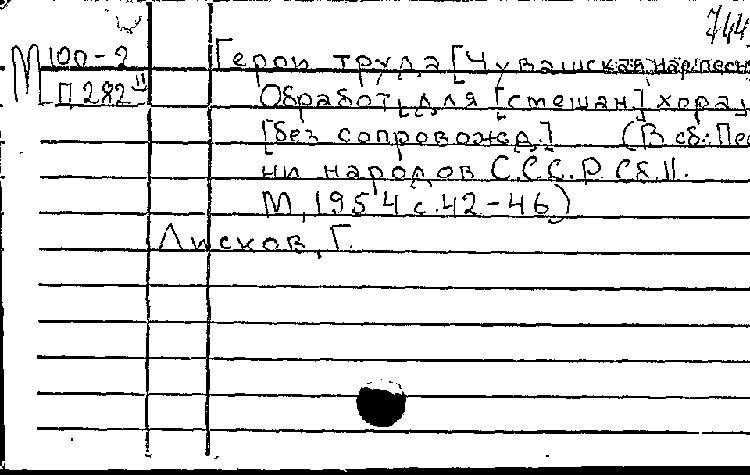 744
М 100-2 Герои труда [Чувашская нар. песн
П 282 II Обработ. для [смешан] хора,
[без сопровожд.] (В сб.: Пес
ни народов С.С.С.Р Сб.II.
М, 1954 с.42-46)
Лисков, Г.